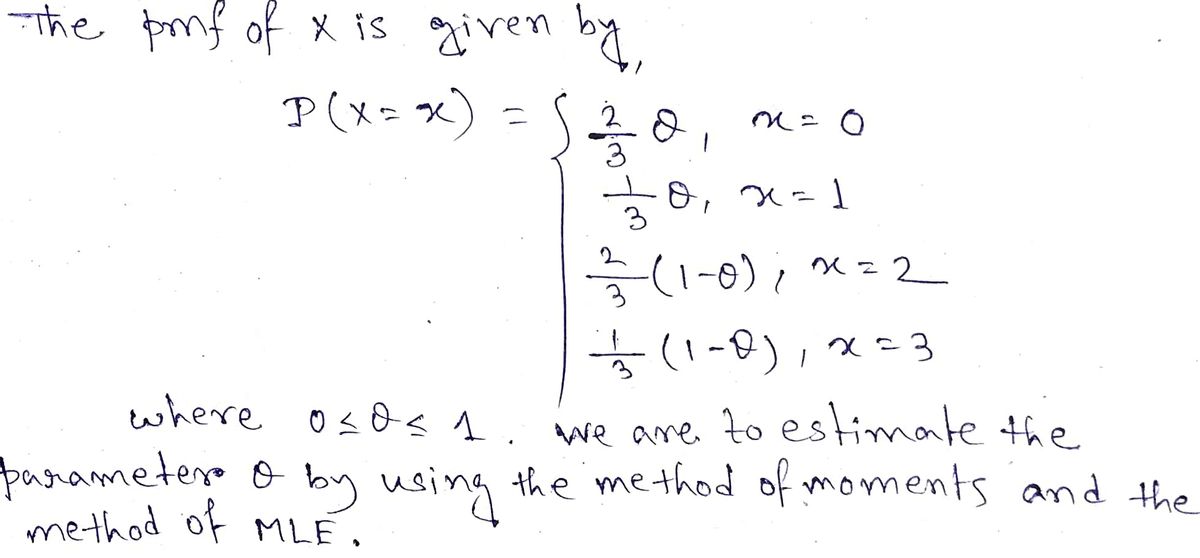 The pmf of X is given by,
P(X=x) = { 2/3 θ, x=0
1/3 θ, x=1
2/3 (1-θ), x=2
1/3 (1-θ), x=3
where 0≤θ≤1. We are to estimate the
parameter θ by using the method of moments and the
method of MLE.